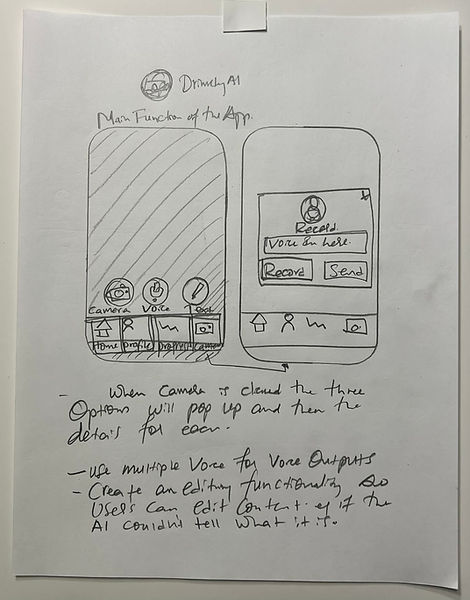 AI
Main Function of the App.
Camera Voice Text
Home Profile Progress Camera
Record.
Voice in here.
Record Send
- When Camera is clicked the three
Options will pop up and then the
details for each.
- Use multiple Voice for Voice Outputs
- Create an editing functionality so
Users can edit Content. eg if the
AI couldn't tell what it is.